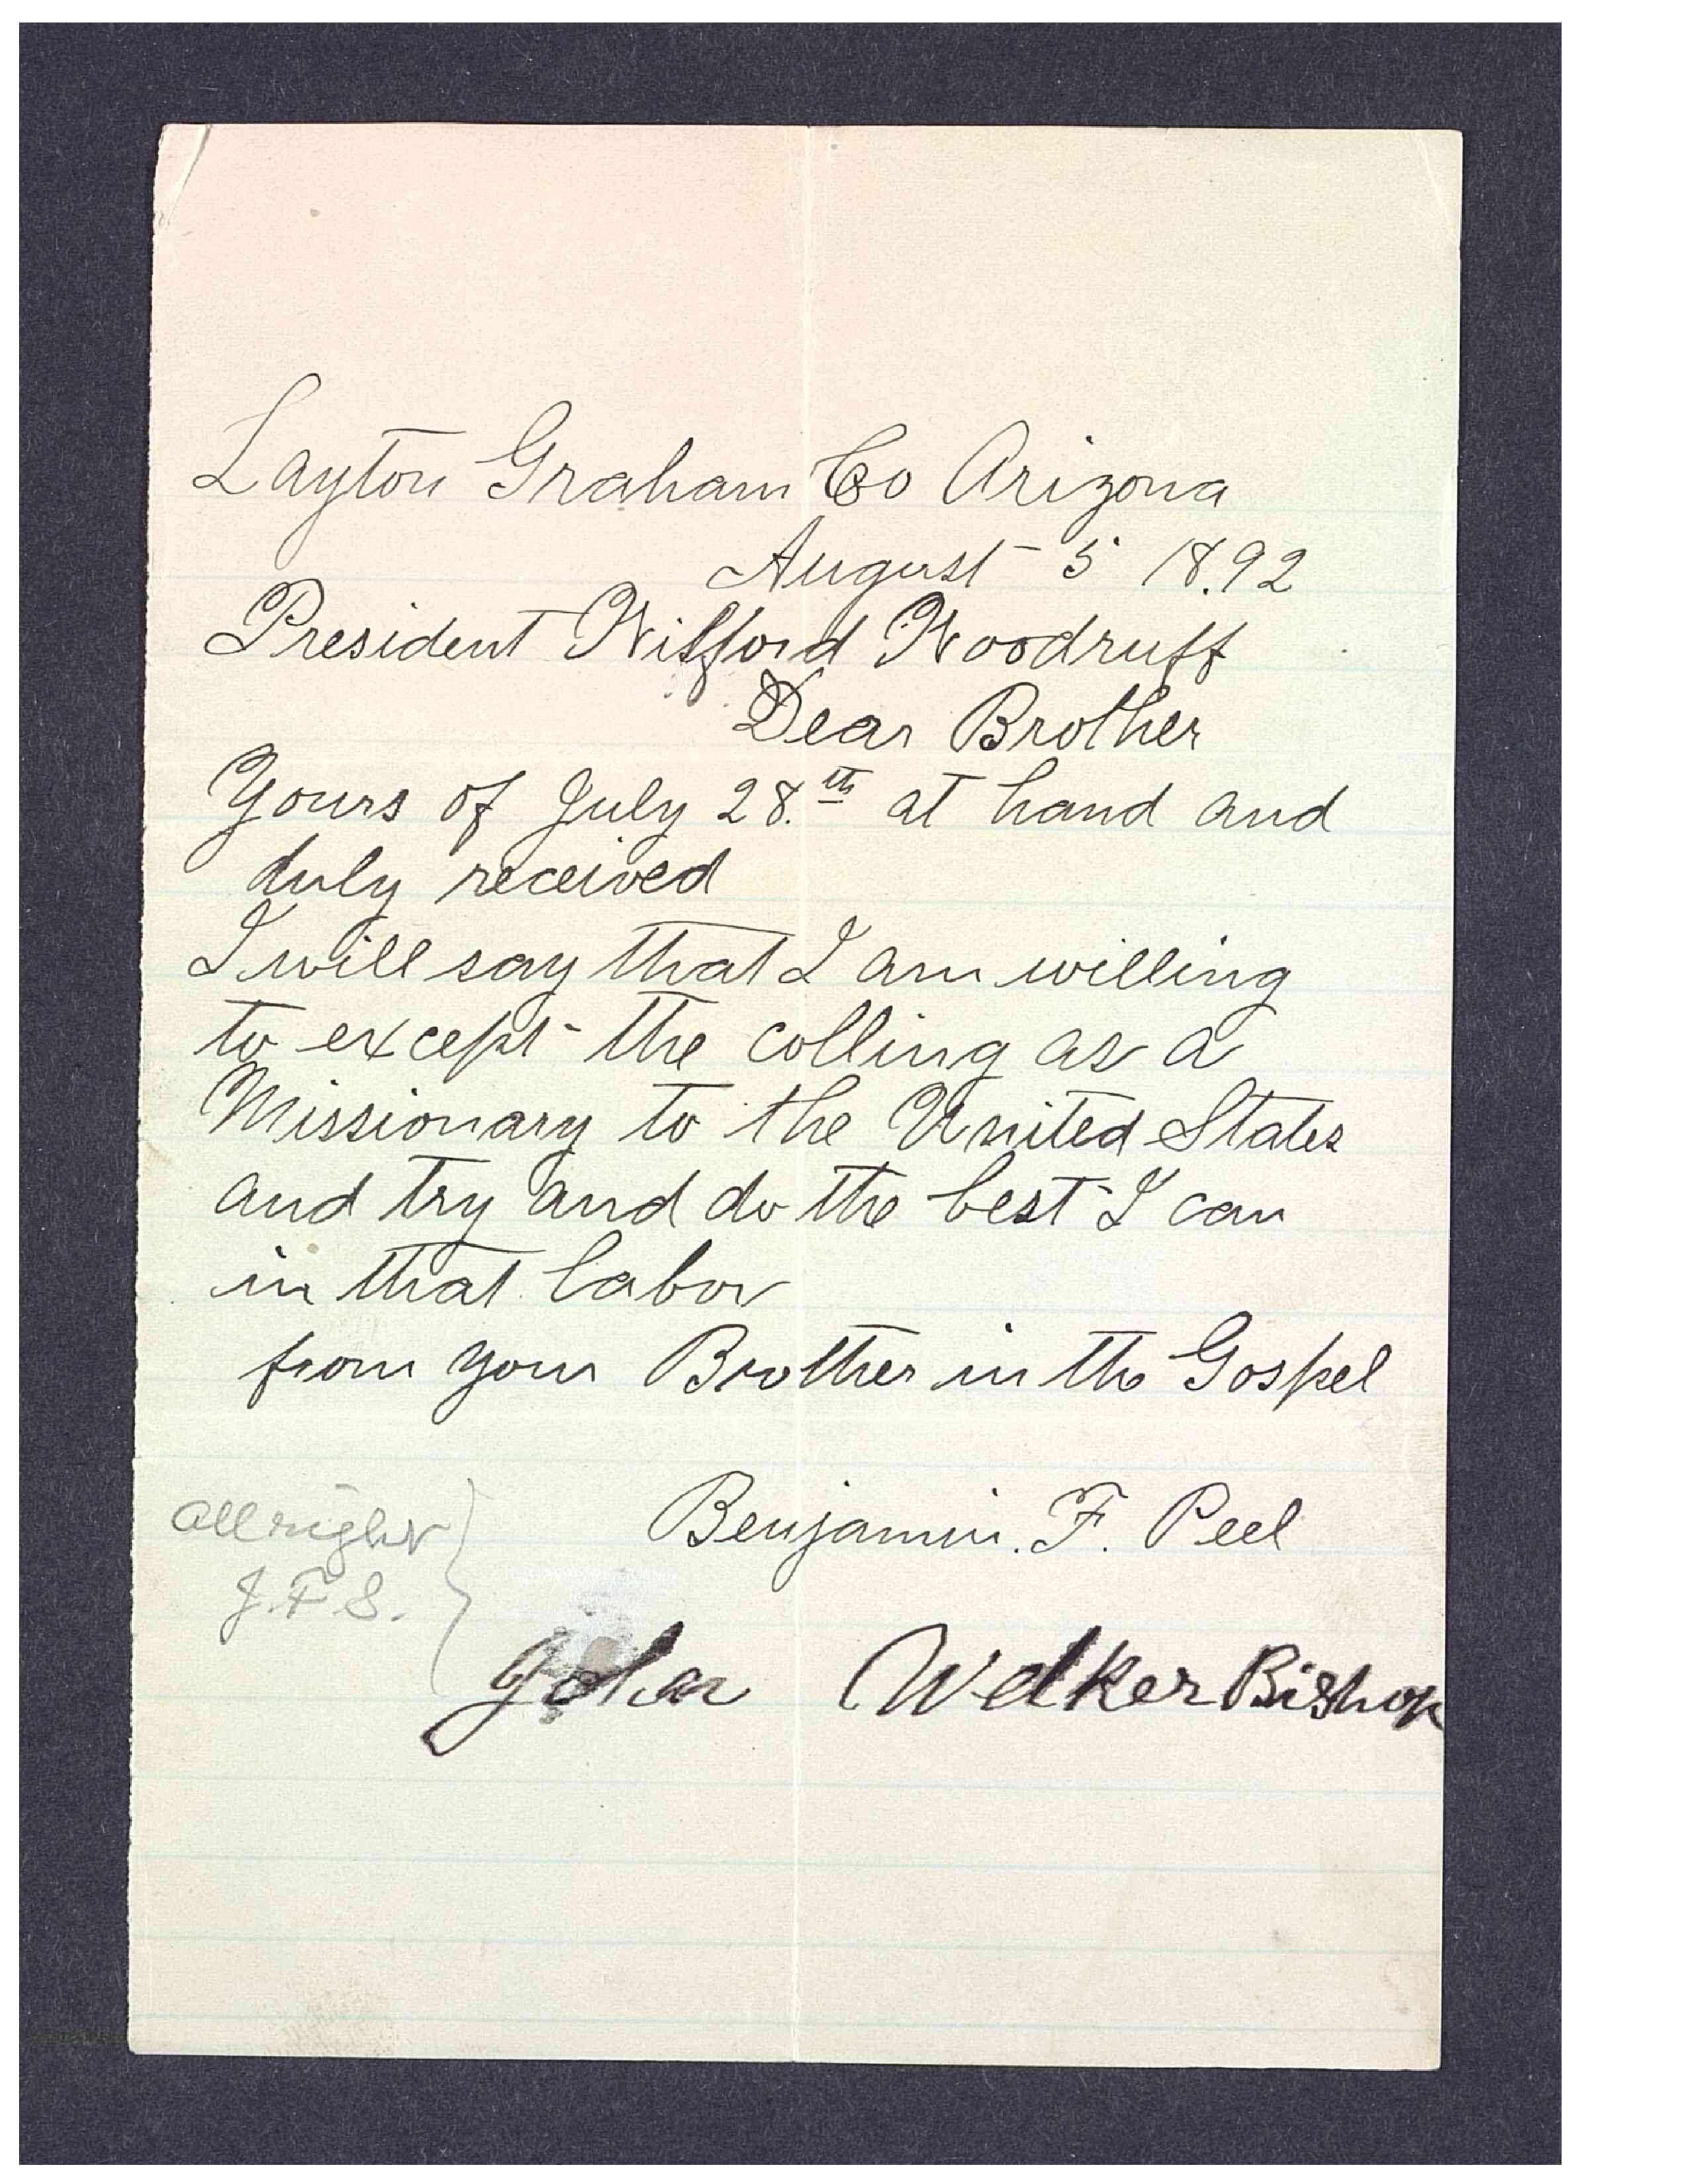 Layton Graham Co Arizona
August 5 18.92
President Wilford Woodruff
Dear Brother
Yours of July 28.th at hand and
duly received
I will say that I am willing
to except the colling as a
Missionary to the United States
and try and do the best I can
in that labor
from your Brother in the Gospel
Benjamin. F. Peel
all right
J. F. S.
John Welker Bishop